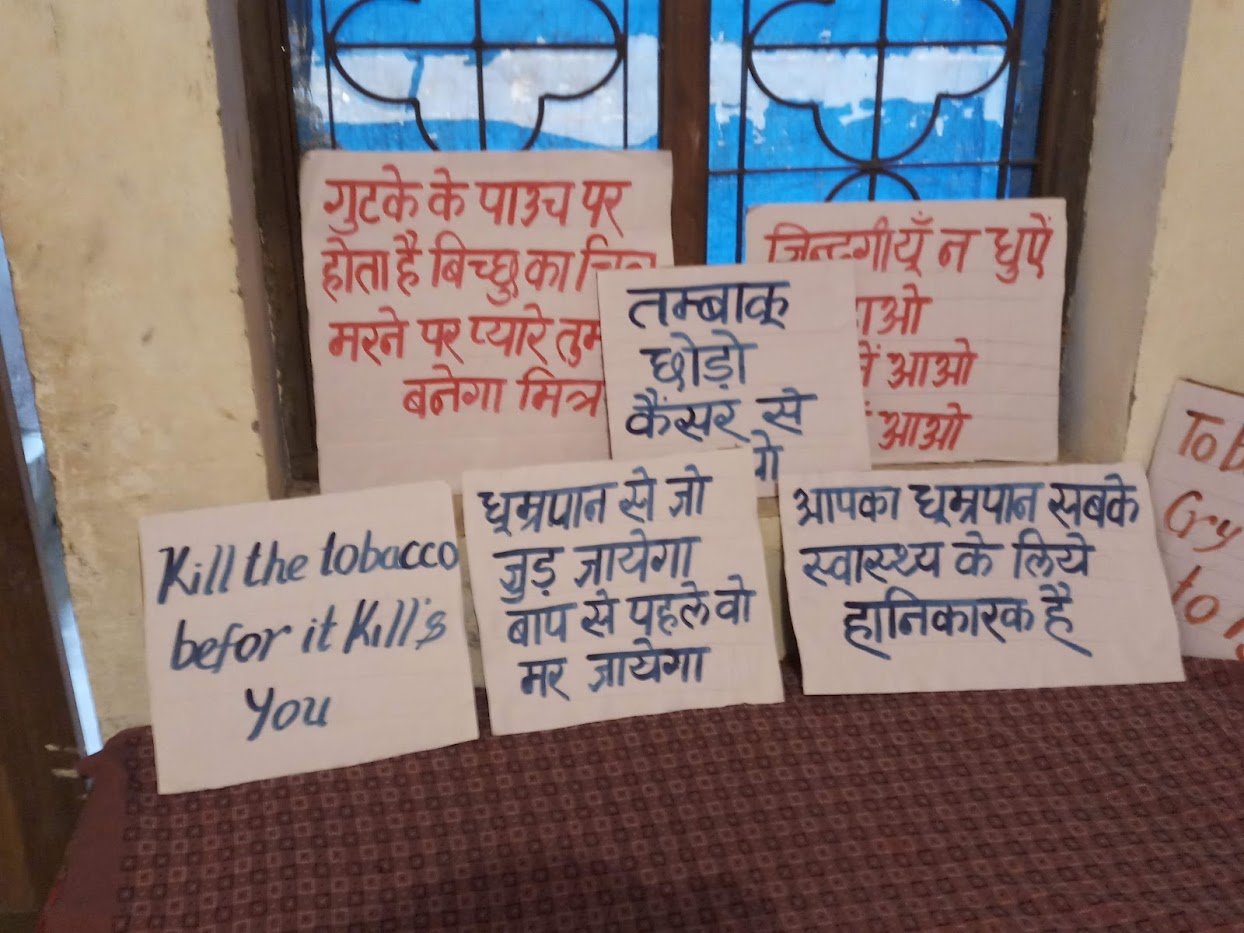 गुटके के पाउच पर
होता है बिच्छु का
मरने पर प्यारे
बनेगा मित्र
जिन्दगी यूँ न धुऐं
आओ
आओ
तम्बाकू
छोड़ो
कैंसर से
Kill the tobacco
befor it Kill's
You
धूम्रपान से जो
जुड़ जायेगा
बाप से पहले वो
मर जायेगा
आपका धूम्रपान सबके
स्वास्थ्य के लिये
हानिकारक है
To
Cry
to